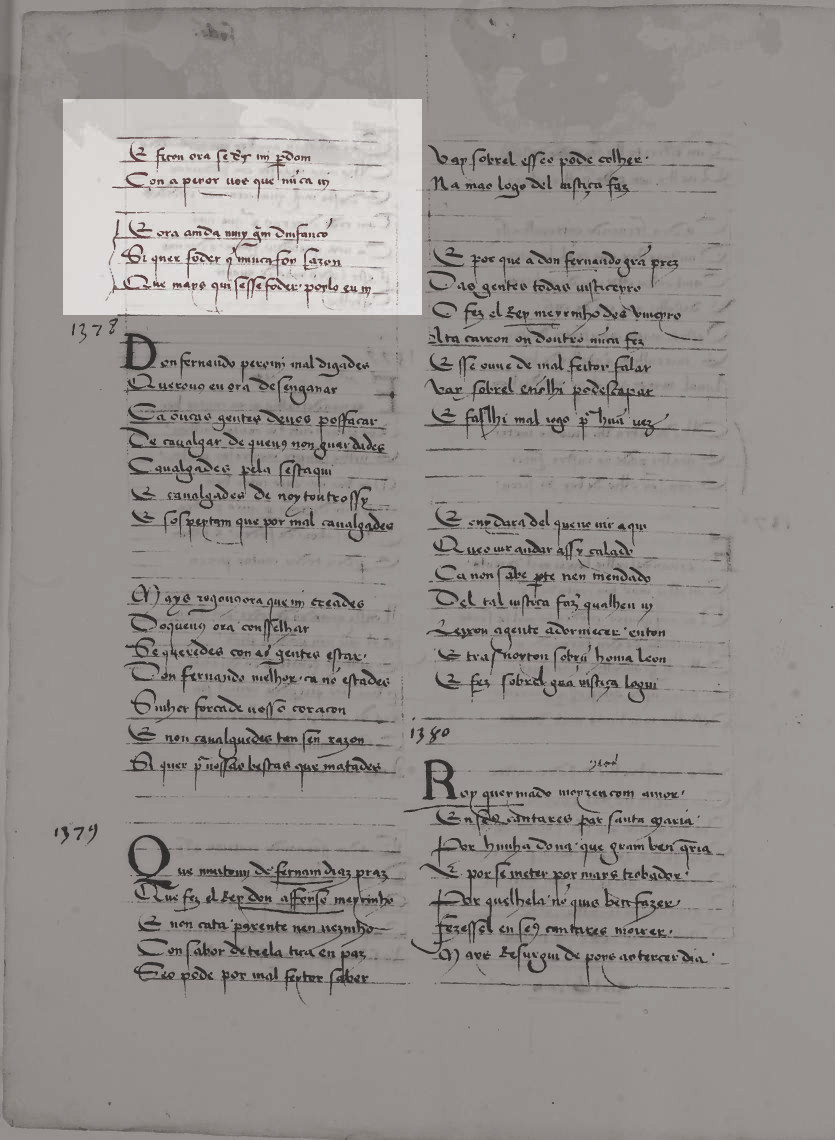 E ficou ora se d's mi p̃dom
Con a peior uos que nũca ui
E ora ainda muy gm̃ dinfançō
Si quer foder q̃ nuncafoy sazon
Que mays qui sesse foder· poylo eu ui
1378
Don fernando peroni mal digades
Querouꝯ eu ora desenganar
Ca ouças gentes deuos possacar
De caualgar de queuꝯ non guardades
Caualgades pela sestaqui
E caualgades de noytoutrossy
E sospeytam que por mal caualgades
Mays rogouꝯora que mi creades
Doqueuꝯ ora conselhar
Se queredes con as gentes estar·
Don fernando melhor· ca nō estades
Sinher forcade uosso coracon
E non caualguedes tan sen razon
Si quer p̃ uossas bestas que matades
1379
Que de fernam diaz praz
Que fez el Rey don affonso meyrinho
E non cata parente nen uezinho
Con sabor de teela tirra en paz
Seo pode por mal feytor saber
Vay sobrel esseo pode colher·
Na mao logo del iustiça faz
E por que a don fernando grā prez
Das gentes todas iusticeyro
O fez el Rey meyrinho des
Ata carron on doutro nũca fez
E sse ouue de mal feitor falar
Vay sobrel enōlhi podescapar
E faslhi mal iogo p̃ hũa uez
E cuydara del queno uir aqui
Queo uir andar assy calado
Ca non sabe p̃te nen mandado
Del tal iustiça faz qualheu ui
Leyxou agente adormecer· enton
E trasnoyton sobrũ homa leon
E fez sobrel grā iustiça logui
1380
Roy queymado morreucom amor·
En seꝯ cantares par santa maria
Por hunha dona· que gram ben q̃ria
E por se meter por mays trobador·
Por quelhela· nō quis ben fazer·
fezessel en seꝯ cantares morrer·
Mays Resurgiu de poys ao tercer dia·